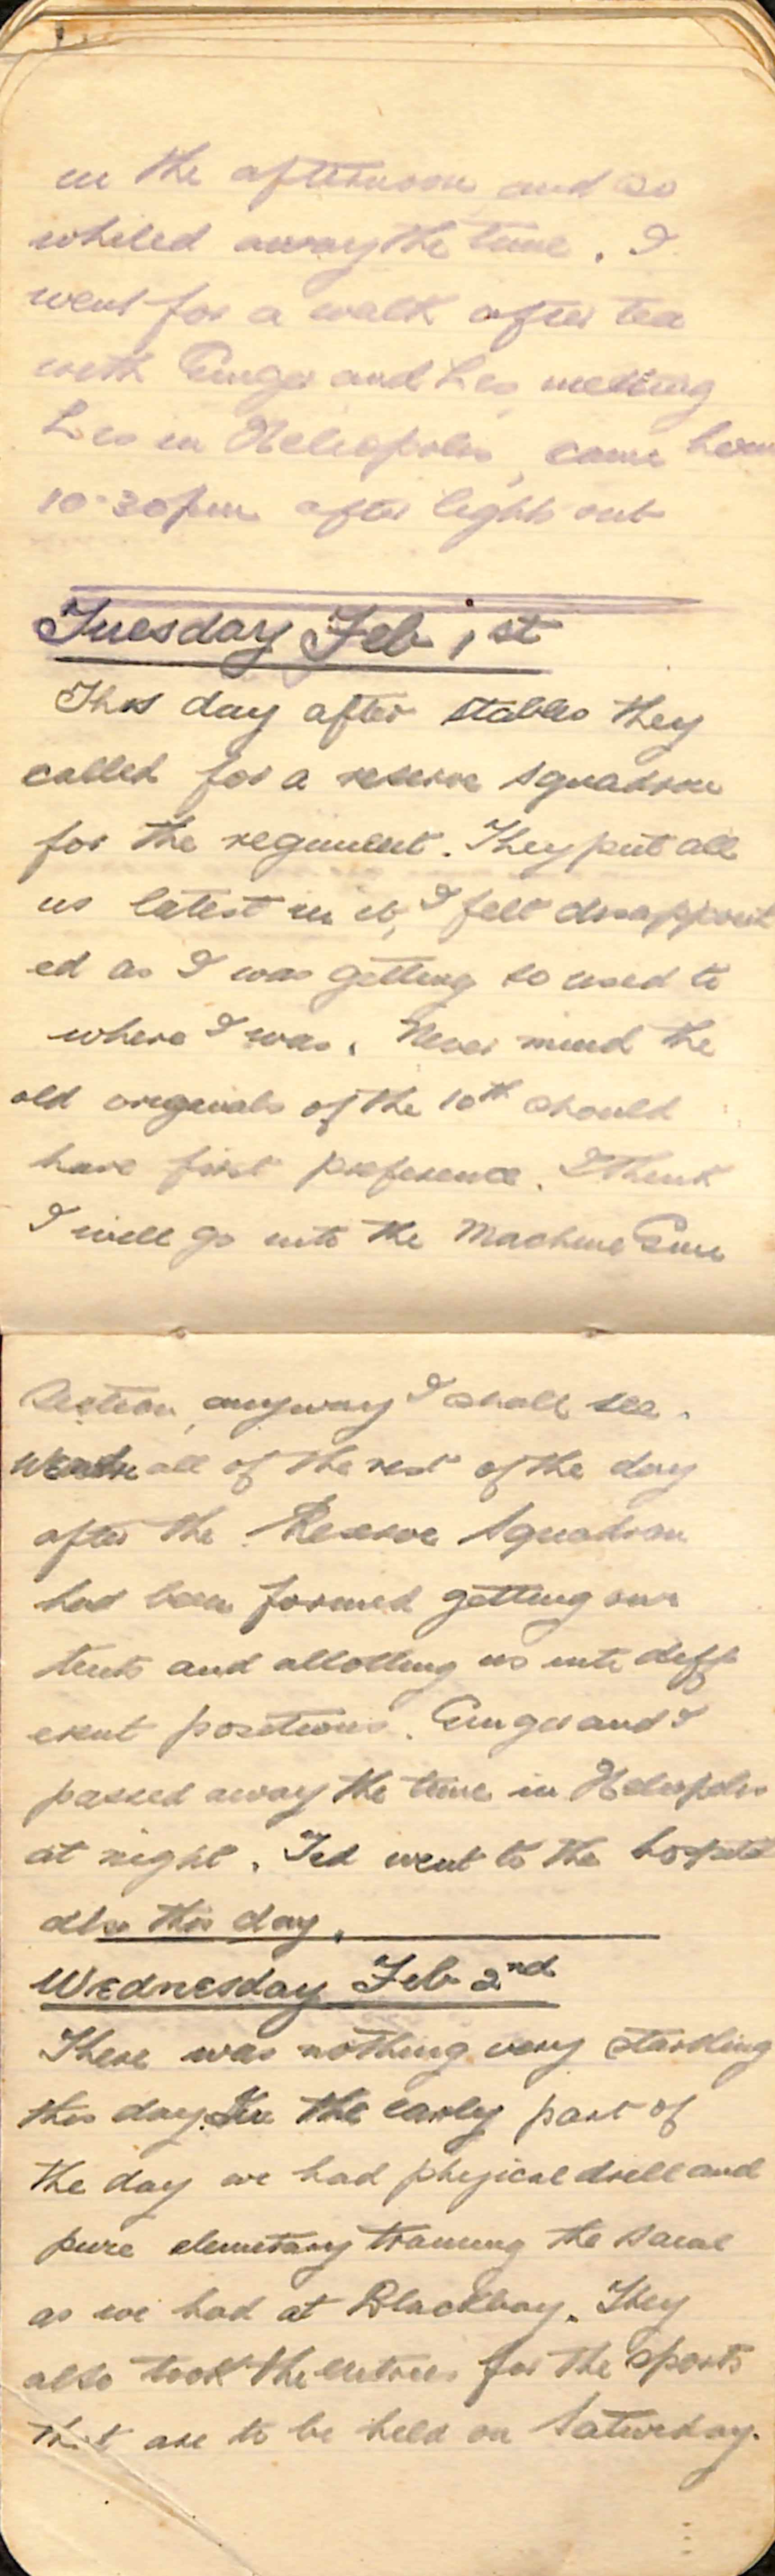 in the afternoon, and so
whiled away the time. I
went for a walk after tea
with Ginger and Les, meeting
Les in Heliopolis, came home
10-30pm after lights out
Tuesday Feb 1st
This day after stables they
called for a reserve squadron
for the regiment. They put all
us latest in it, I felt disappoint
ed as I was getting so used to
where I was. Never mind the
old originals of the 10th should
have first preference. I think
I will go into the Machine Gun
Section, anyway I shall see.
all of the rest of the day
after the Reserve Squadron
had been formed getting our
tents and allotting us into diff
erent positions. Ginger and I
passed away the time in Heliopolis
at night. Ted went to the hospital
also this day.
Wednesday Feb 2nd
There was nothing very startling
this day. In the early part of
the day we had phyical drill and
pure elemetary training the same
as we had at Blackboy. They
also took the entries for the sports
that are to be held on Saturday.